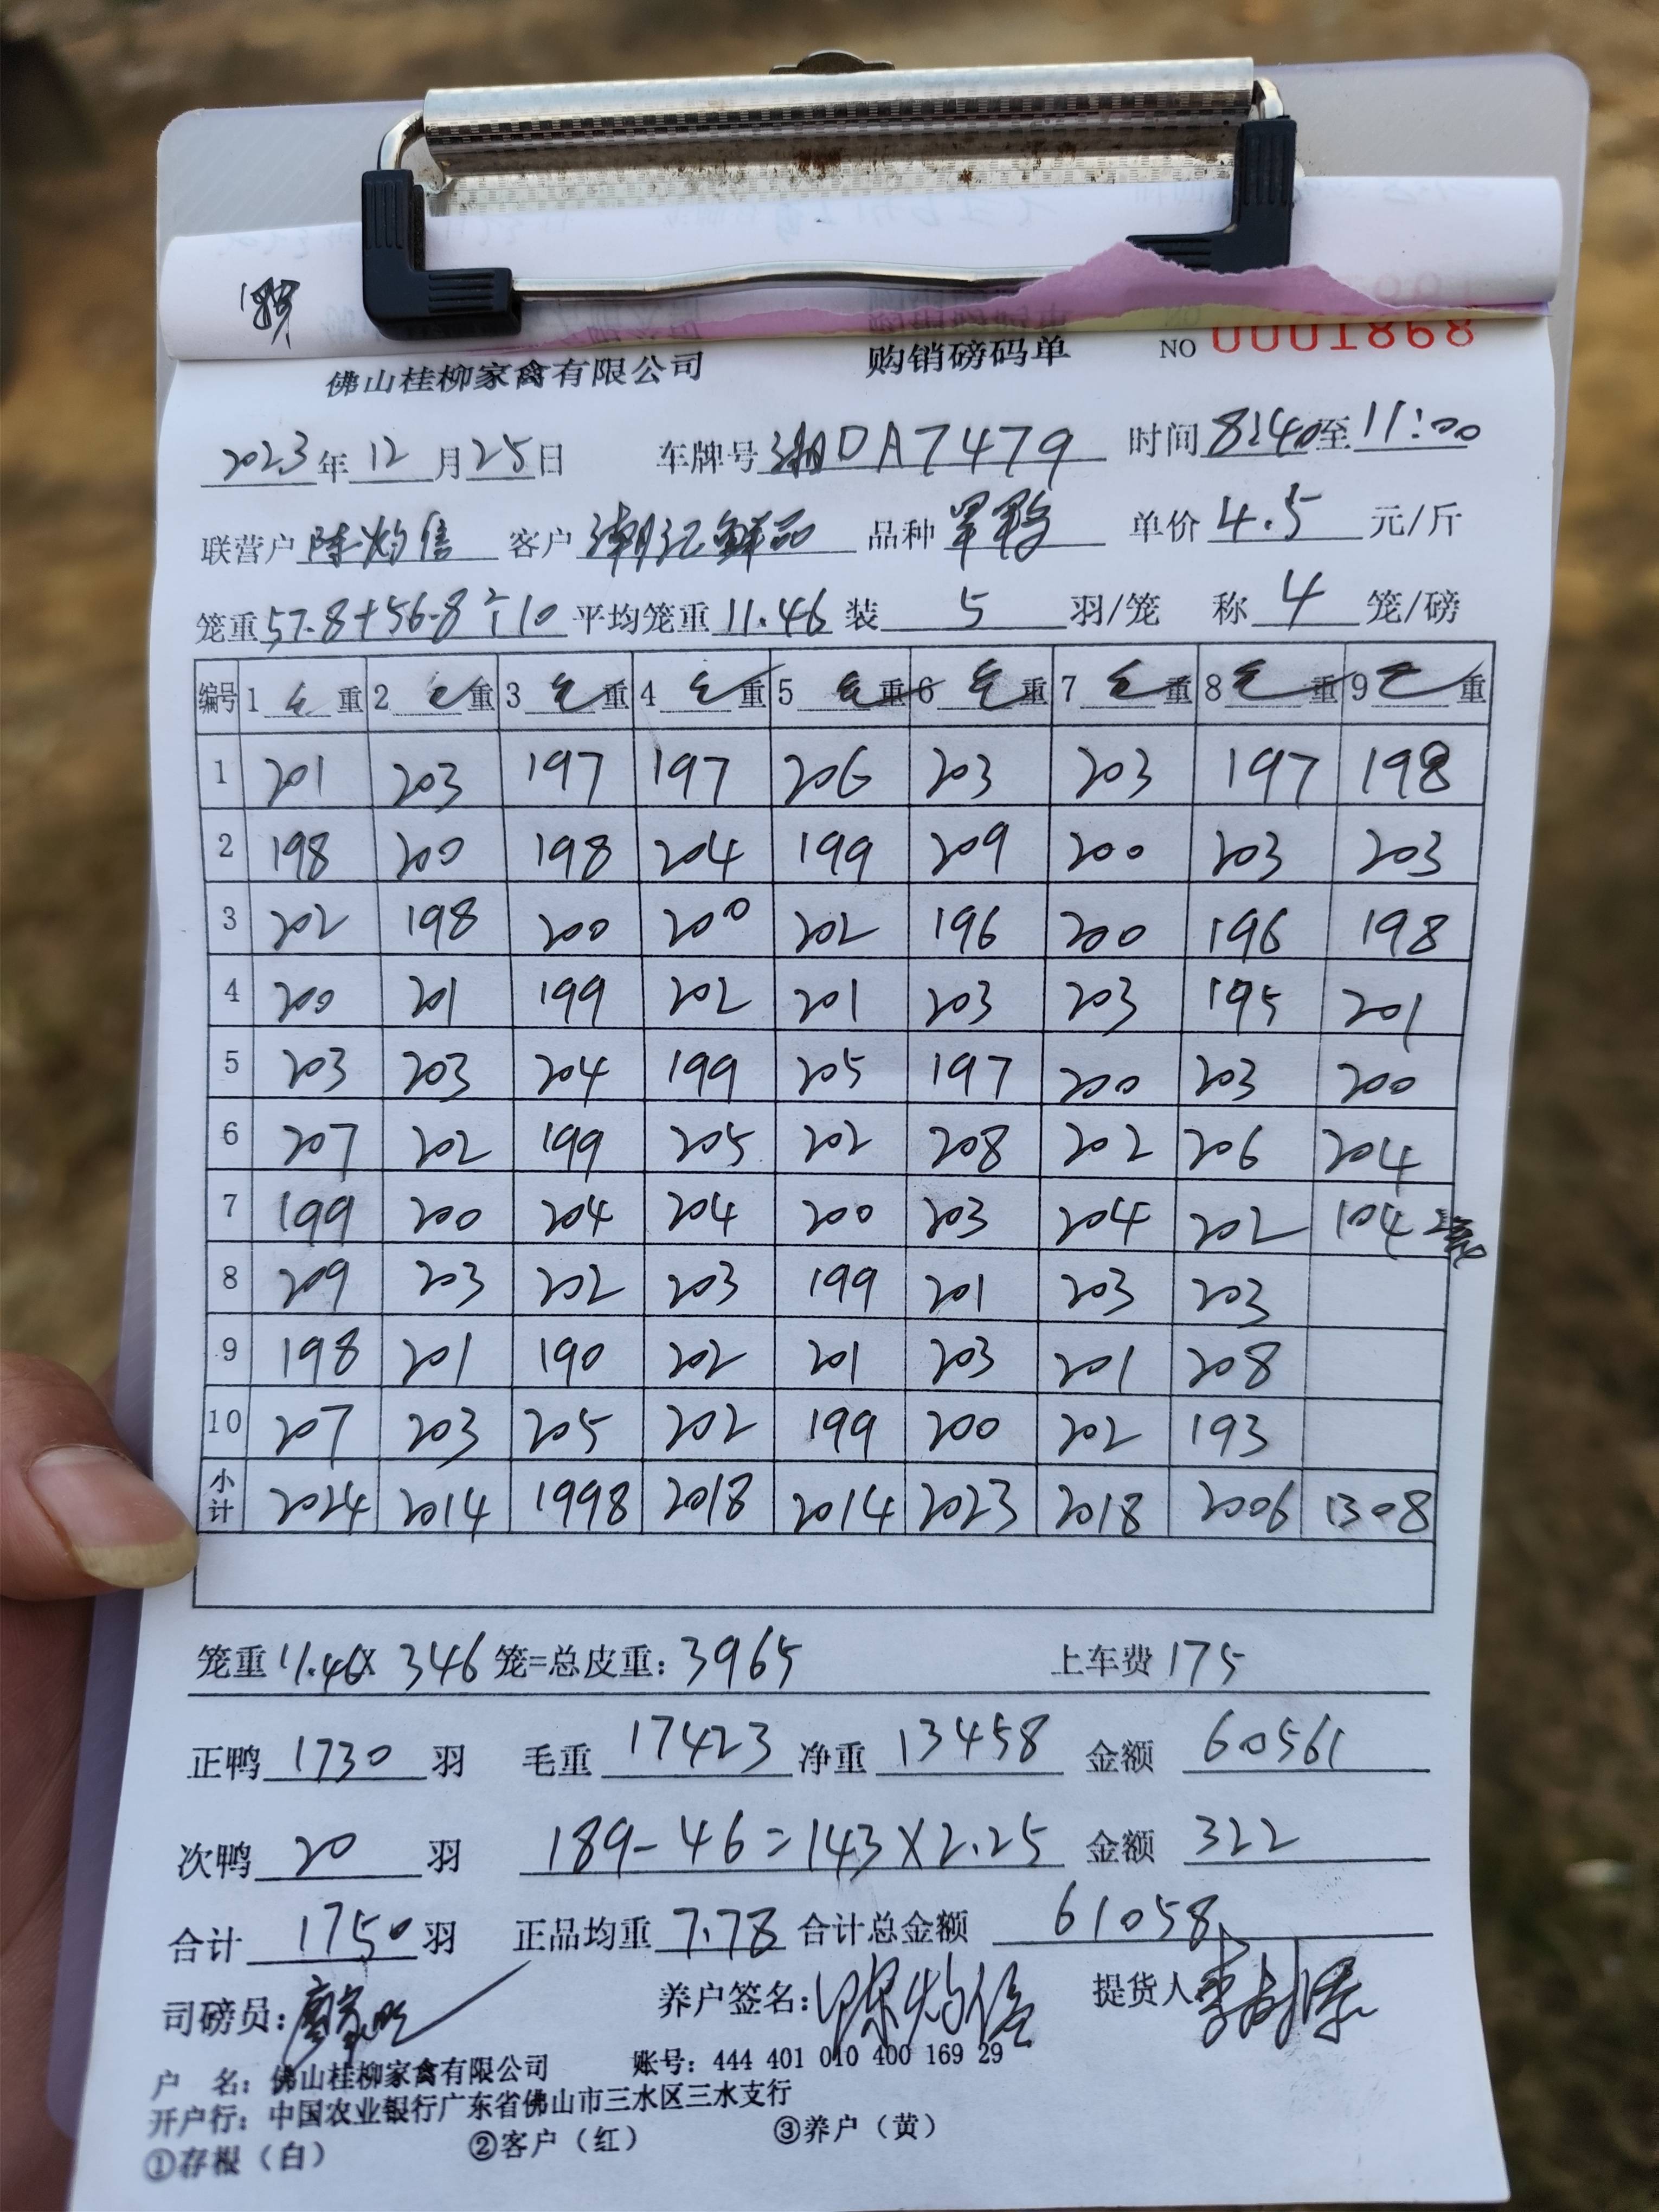 佛山桂柳家禽有限公司 购销磅码单 NO 0001868
2023年12月25日 车牌号 湘DA7479 时间 8:40至11:00
联营户 陈灼信 客户 潮汇鲜品 品种 单价 4.5 元/斤
笼重 57.8+56.8÷10 平均笼重 11.46 装 5 羽/笼 称 4 笼/磅
编号 1 毛重 2 毛重 3 毛重 4 毛重 5 毛重 6 毛重 7 毛重 8 毛重 9 毛重
1 201 203 197 197 206 203 203 197 198
2 198 200 198 204 199 209 200 203 203
3 202 198 200 200 202 196 200 196 198
4 200 201 199 202 201 203 203 195 201
5 203 203 204 199 205 197 200 203 200
6 207 202 199 205 202 208 202 206 204
7 199 200 204 204 200 203 204 202 104 2笼
8 209 203 202 203 199 201 203 203
9 198 201 190 202 201 203 201 208
10 207 203 205 202 199 200 202 193
小计 2024 2014 1998 2018 2014 2023 2018 2006 1308
笼重 11.46× 346 笼=总皮重: 3965 上车费 175
正鸭 1730 羽 毛重 17423 净重 13458 金额 60561
次鸭 20 羽 189-46=143×2.25 金额 322
合计 1750 羽 正品均重 7.78 合计总金额 61058
司磅员: 养户签名: 陈灼信 提货人
户 名: 佛山桂柳家禽有限公司 账号: 444 401 010 400 169 29
开户行: 中国农业银行广东省佛山市三水区三水支行
①存根（白） ②客户（红） ③养户（黄）